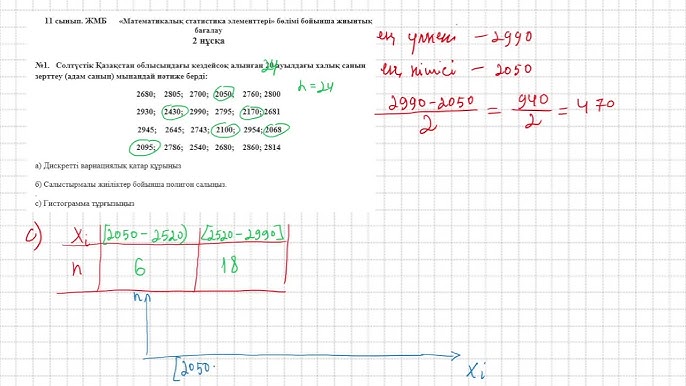 11 сынып. ЖМБ «Математикалық статистика элементтері» бөлімі бойынша жиынтық
бағалау
2 нұсқа
№1. Солтүстік Қазақстан облысындағы кездейсоқ алынған 24 ауылдағы халық санын
зерттеу (адам санын) мынандай нәтиже берді:
n = 24
2680; 2805; 2700; 2050; 2760; 2800
2930; 2430; 2990; 2795; 2170; 2681
2945; 2645; 2743; 2100; 2954; 2068
2095; 2786; 2540; 2680; 2860; 2814
а) Дискретті вариациялық қатар құрыңыз
б) Салыстырмалы жиіліктер бойынша полигон салыңыз.
с) Гистограмма тұрғызыңыз
ең үлкені – 2990
ең кішісі – 2050
2990 – 2050 / 2 = 940 / 2 = 470
c) Xi [2050 – 2520) [2520 – 2990]
n 6 18
n
[2050
Xi